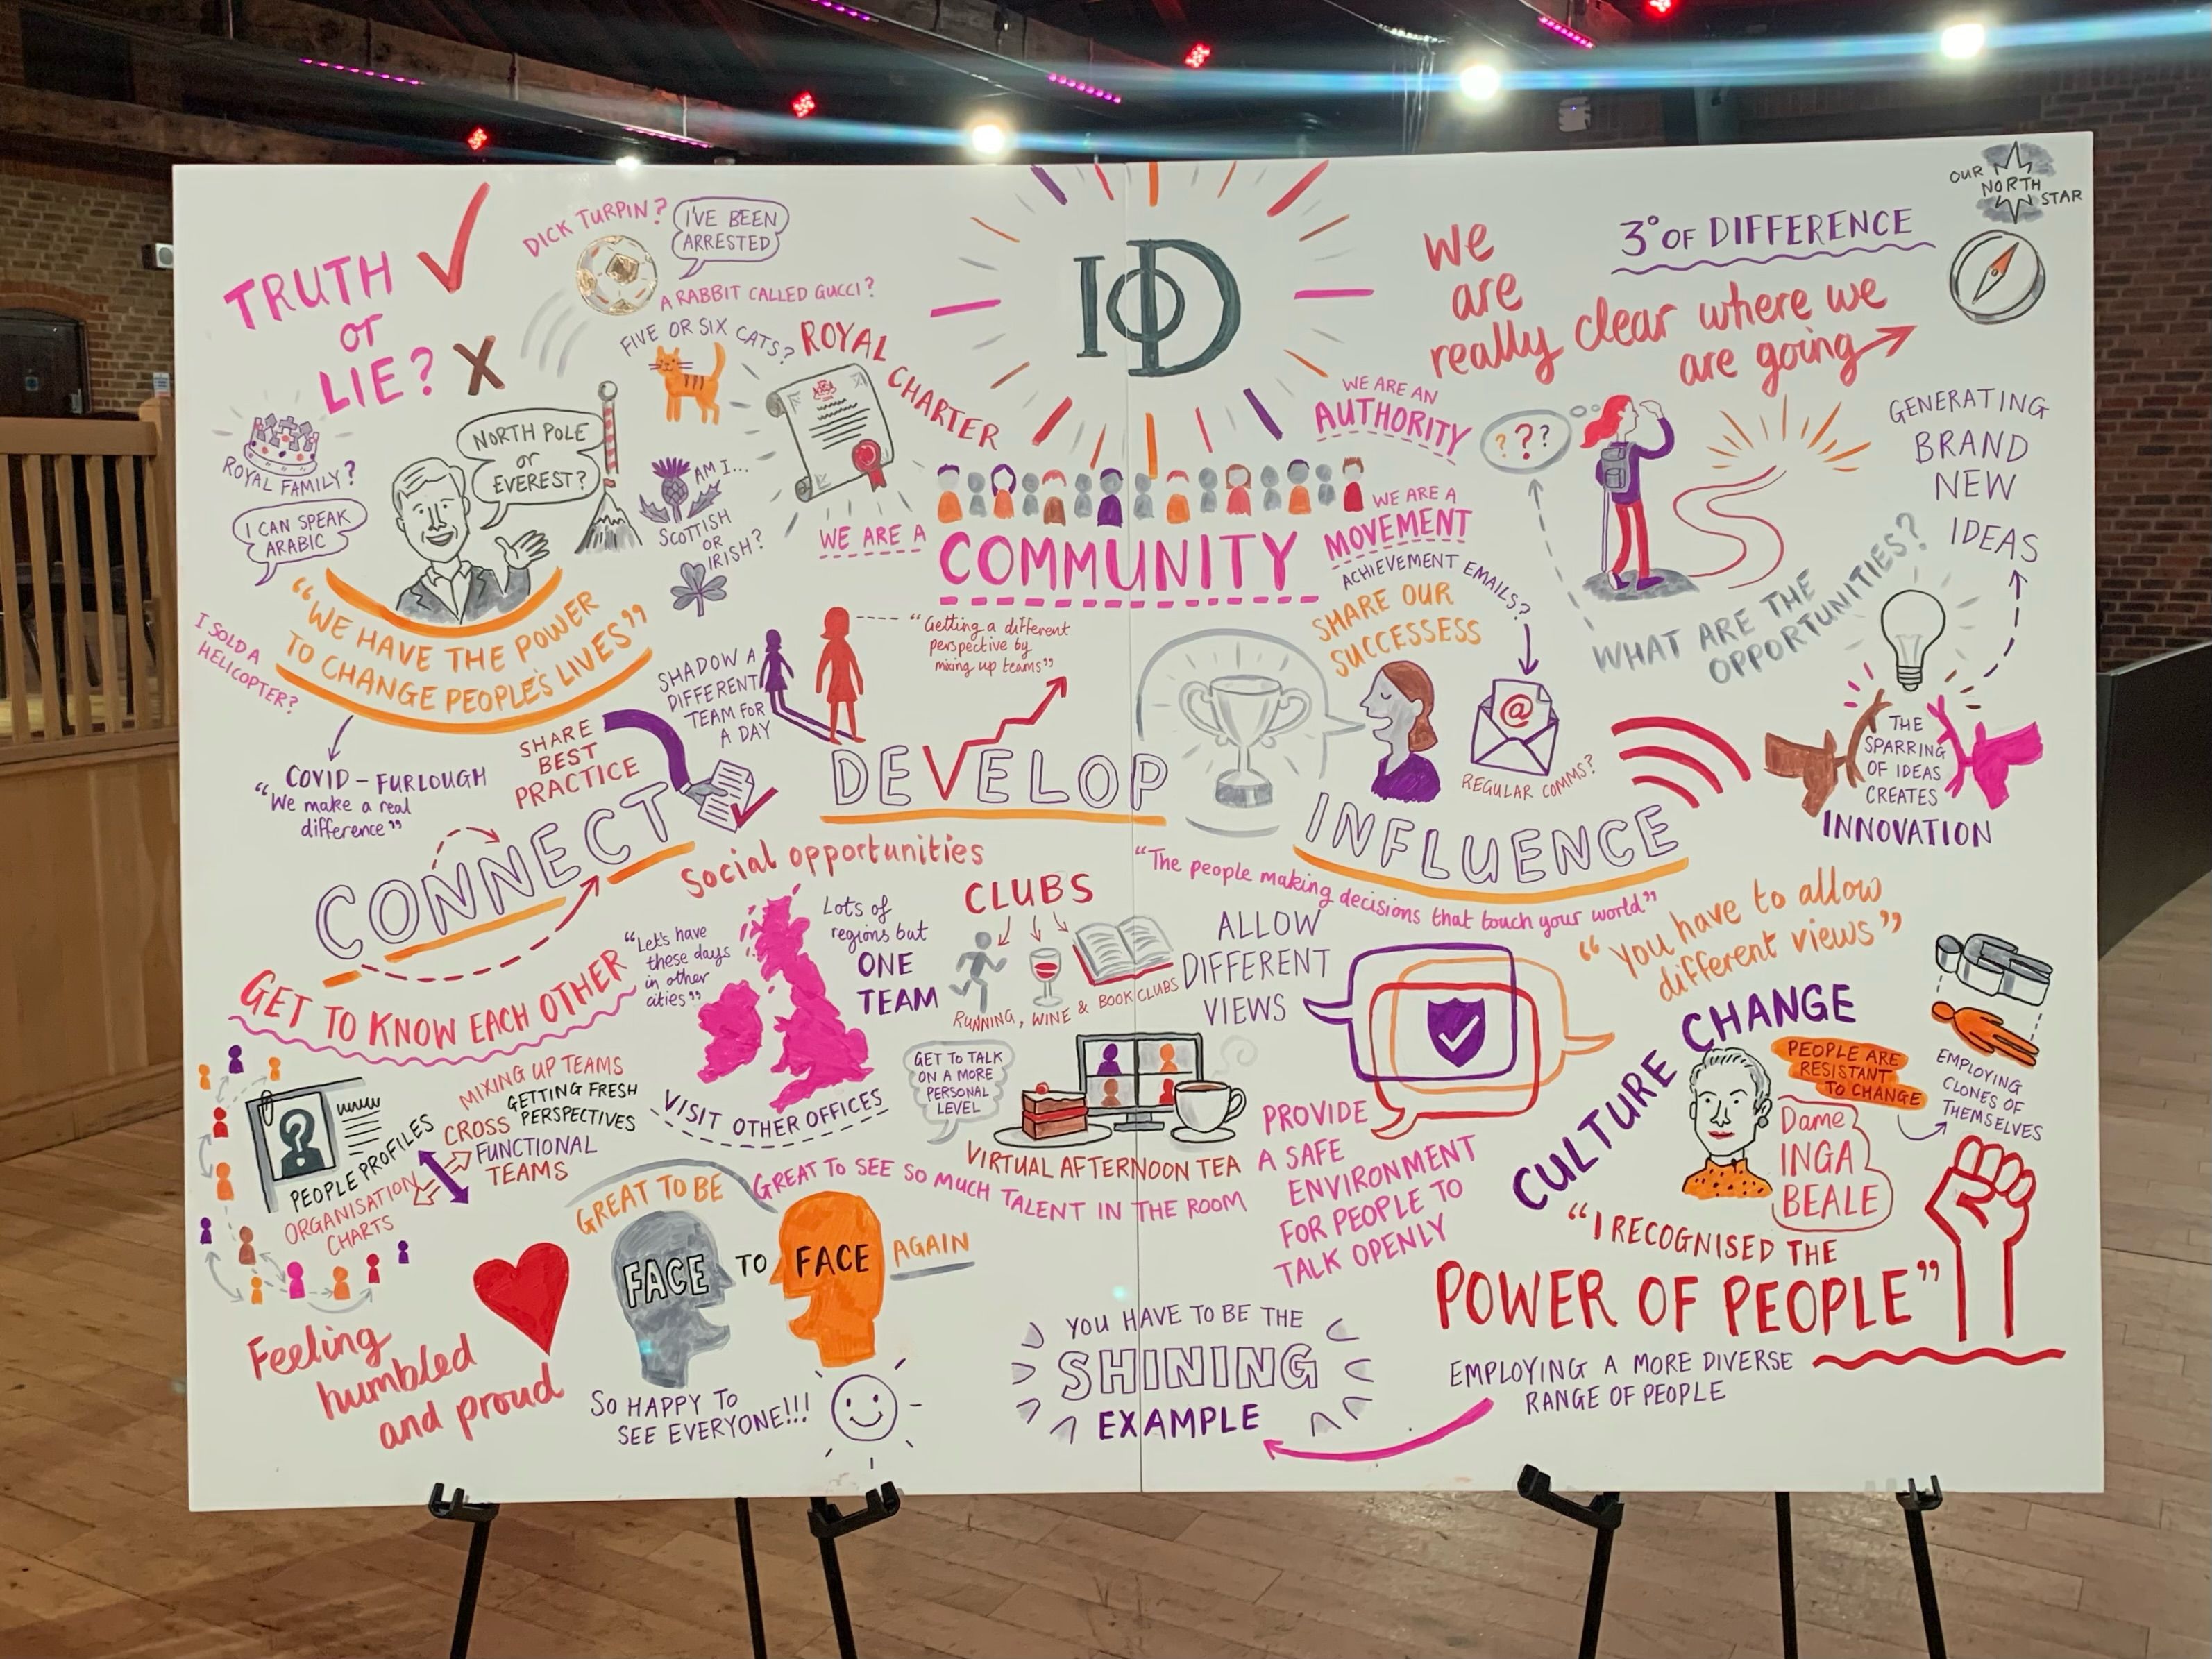 TRUTH
or
LIE?
X
DICK TURPIN?
I'VE BEEN
ARRESTED
A RABBIT CALLED GUCCI?
FIVE OR SIX CATS?
ROYAL
CHARTER
ROYAL FAMILY?
I CAN SPEAK
ARABIC
NORTH POLE
or
EVEREST?
AM I...
SCOTTISH
OR
IRISH?
"WE HAVE THE POWER
TO CHANGE PEOPLE'S LIVES"
I SOLD A
HELICOPTER?
COVID - FURLOUGH
"We make a real
difference"
IOD
WE ARE A
COMMUNITY
WE ARE AN
AUTHORITY
WE ARE A
MOVEMENT
3° OF DIFFERENCE
OUR
NORTH
STAR
We
are
really clear where we
are going
? ? ?
GENERATING
BRAND
NEW
IDEAS
WHAT ARE THE
OPPORTUNITIES?
ACHIEVEMENT EMAILS?
SHARE OUR
SUCCESSESS
@
REGULAR COMMS?
THE
SPARRING
OF IDEAS
CREATES
INNOVATION
SHADOW A
DIFFERENT
TEAM FOR
A DAY
"Getting a different
perspective by
mixing up teams"
SHARE
BEST
PRACTICE
CONNECT
DEVELOP
INFLUENCE
"The people making decisions that touch your world"
GET TO KNOW EACH OTHER
Social opportunities
"Let's have
these days
in other
cities"
Lots of
regions but
ONE
TEAM
VISIT OTHER OFFICES
CLUBS
RUNNING, WINE & BOOK CLUBS
GET TO TALK
ON A MORE
PERSONAL
LEVEL
VIRTUAL AFTERNOON TEA
?
PEOPLE PROFILES
ORGANISATION
CHARTS
MIXING UP TEAMS
GETTING FRESH
PERSPECTIVES
CROSS
FUNCTIONAL
TEAMS
GREAT TO BE
FACE TO FACE AGAIN
GREAT TO SEE SO MUCH TALENT IN THE ROOM
Feeling
humbled
and proud
SO HAPPY TO
SEE EVERYONE!!!
ALLOW
DIFFERENT
VIEWS
PROVIDE
A SAFE
ENVIRONMENT
FOR PEOPLE TO
TALK OPENLY
"You have to allow
different views"
CULTURE CHANGE
PEOPLE ARE
RESISTANT
TO CHANGE
EMPLOYING
CLONES OF
THEMSELVES
Dame
INGA
BEALE
"I RECOGNISED THE
POWER OF PEOPLE"
EMPLOYING A MORE DIVERSE
RANGE OF PEOPLE
YOU HAVE TO BE THE
SHINING
EXAMPLE